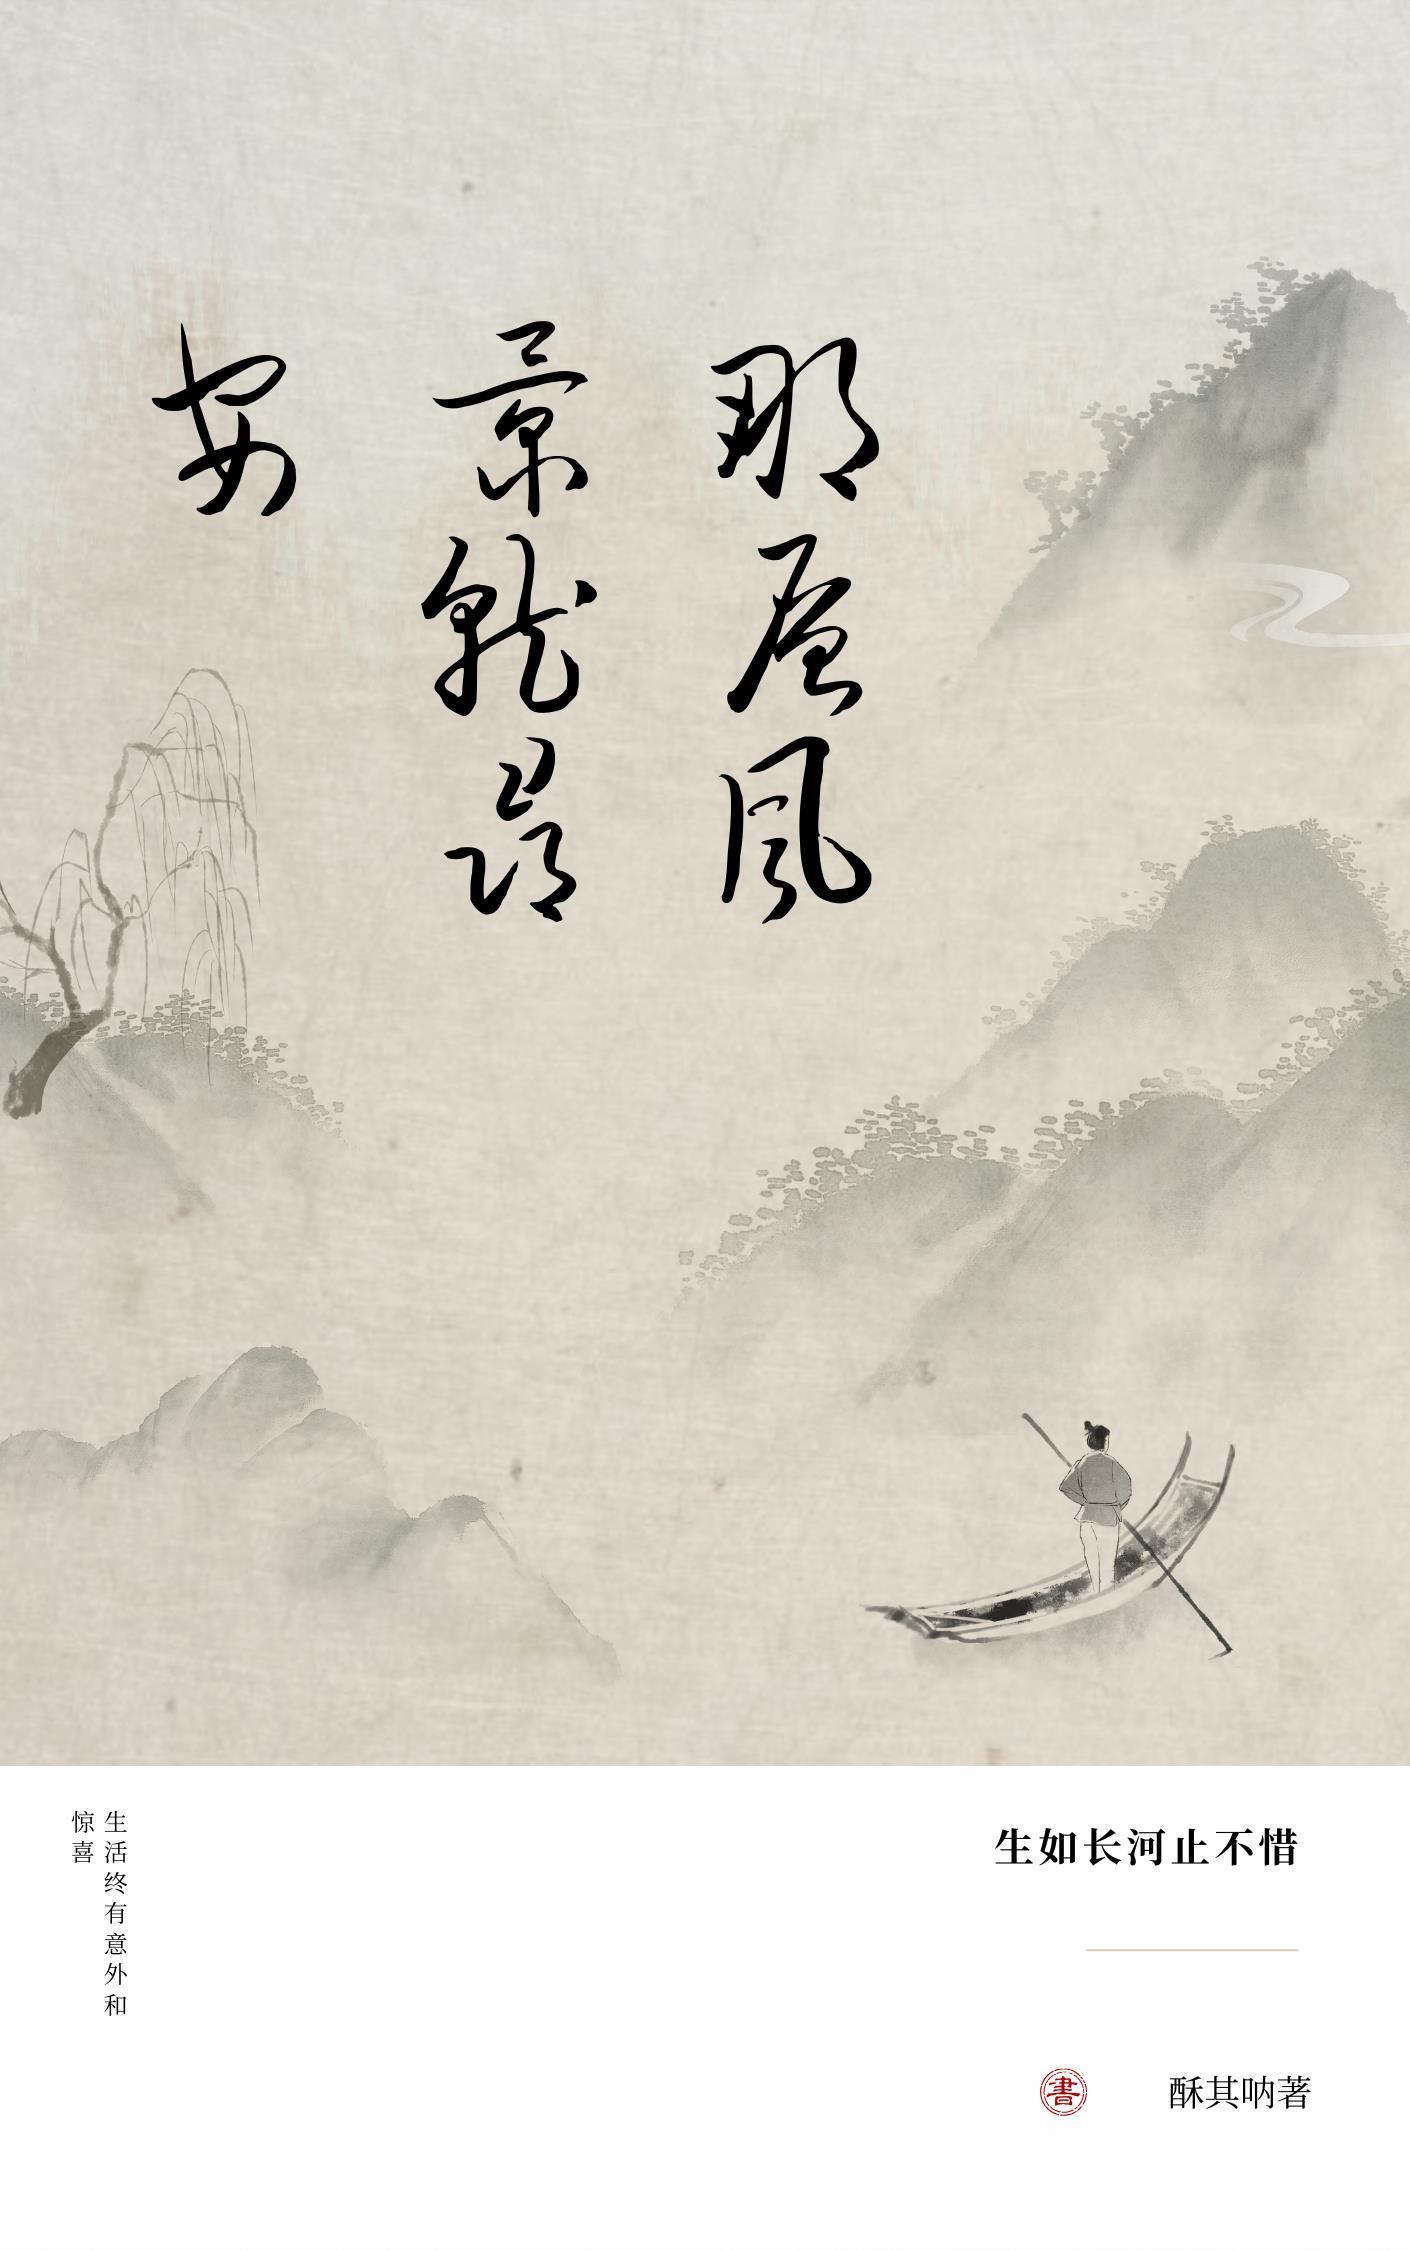 那風
景就
安
生活终有意外和
惊喜
生如长河止不惜
書
酥其呐著